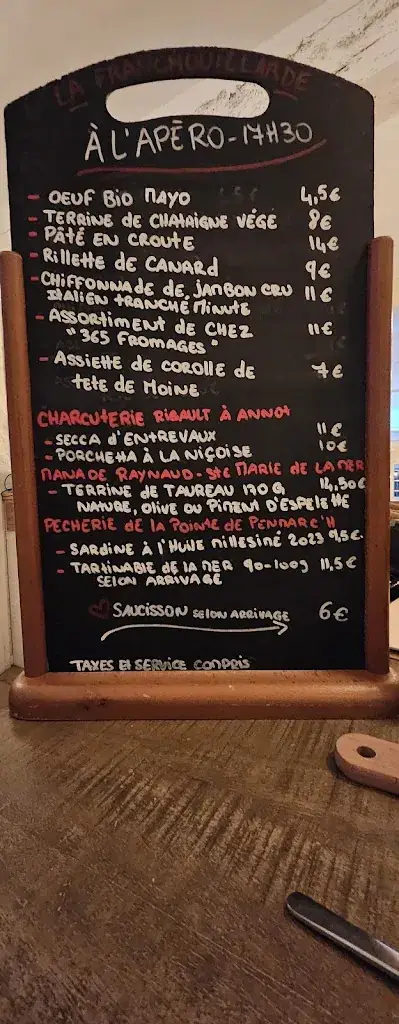 LA FRANCHOUILLARDE
À L'APÉRO - 17H30
- OEUF BIO MAYO 4,5€
- TERRINE DE CHATAIGNE VÉGÉ 8€
- PÂTÉ EN CROUTE 14€
- RILLETTE DE CANARD 9€
- CHIFFONNADE DE JAMBON CRU 11€
ITALIEN TRANCHÉ MINUTE
- ASSORTIMENT DE CHEZ 11€
"365 FROMAGES"
- ASSIETTE DE COROLLE DE 7€
TETE DE MOINE
CHARCUTERIE RIBAULT À ANNOT
- SECCA D'ENTREVAUX 11€
- PORCHETTA À LA NIÇOISE 10€
MANADE RAYNAUD - STE MARIE DE LA MER
- TERRINE DE TAUREAU 170G 14,50€
NATURE, OLIVE OU PIMENT D'ESPELETTE
PECHERIE DE LA POINTE DE PENMARC'H
- SARDINE À L'HUILE MILLESIMÉ 2023 9,5€
- TARTINABLE DE LA MER 90-100g 11,5€
SELON ARRIVAGE
SAUCISSON SELON ARRIVAGE 6€
TAXES ET SERVICE COMPRIS